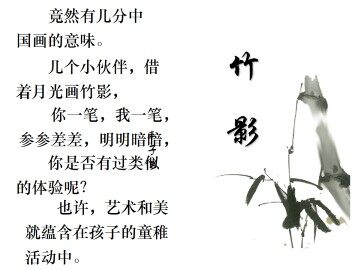 竟然有几分中
国画的意味。
几个小伙伴，借
着月光画竹影，
你一笔，我一笔，
参参差差，明明暗暗，
你是否有过类似
的体验呢？
也许，艺术和美
就蕴含在孩子的童稚
活动中。
竹
影